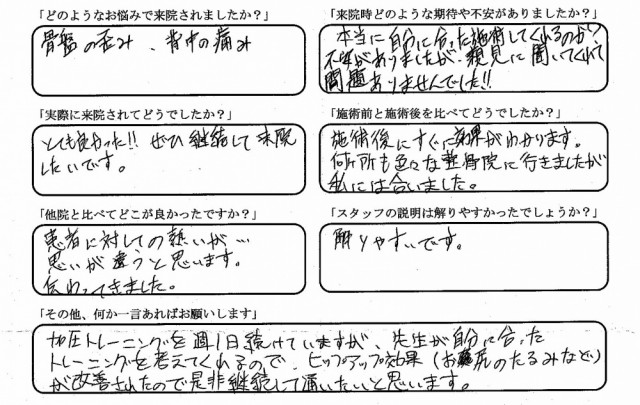 「どのようなお悩みで来院されましたか？」
骨盤の歪み、背中の痛み
「来院時どのような期待や不安がありましたか？」
本当に自分に合った施術してくれるのか？
不安がありましたが、親身に聞いてくれて
問題ありませんでした!!
「実際に来院されてどうでしたか？」
とても良かった!! ぜひ継続して来院
したいです。
「施術前と施術後を比べてどうでしたか？」
施術後にすぐに効果がわかります。
何ヶ所も色々な整骨院に行きましたが
私には合いました。
「他院と比べてどこが良かったですか？」
患者に対しての熱いが…
思いが違うと思います。
伝わってきました。
「スタッフの説明は解りやすかったでしょうか？」
解りやすいです。
「その他、何か一言あればお願いします」
加圧トレーニングを週1日続けていますが、先生が自分に合った
トレーニングを考えてくれるので、ヒップアップ効果（お尻のたるみなど）
が改善されたので是非継続して通いたいと思います。